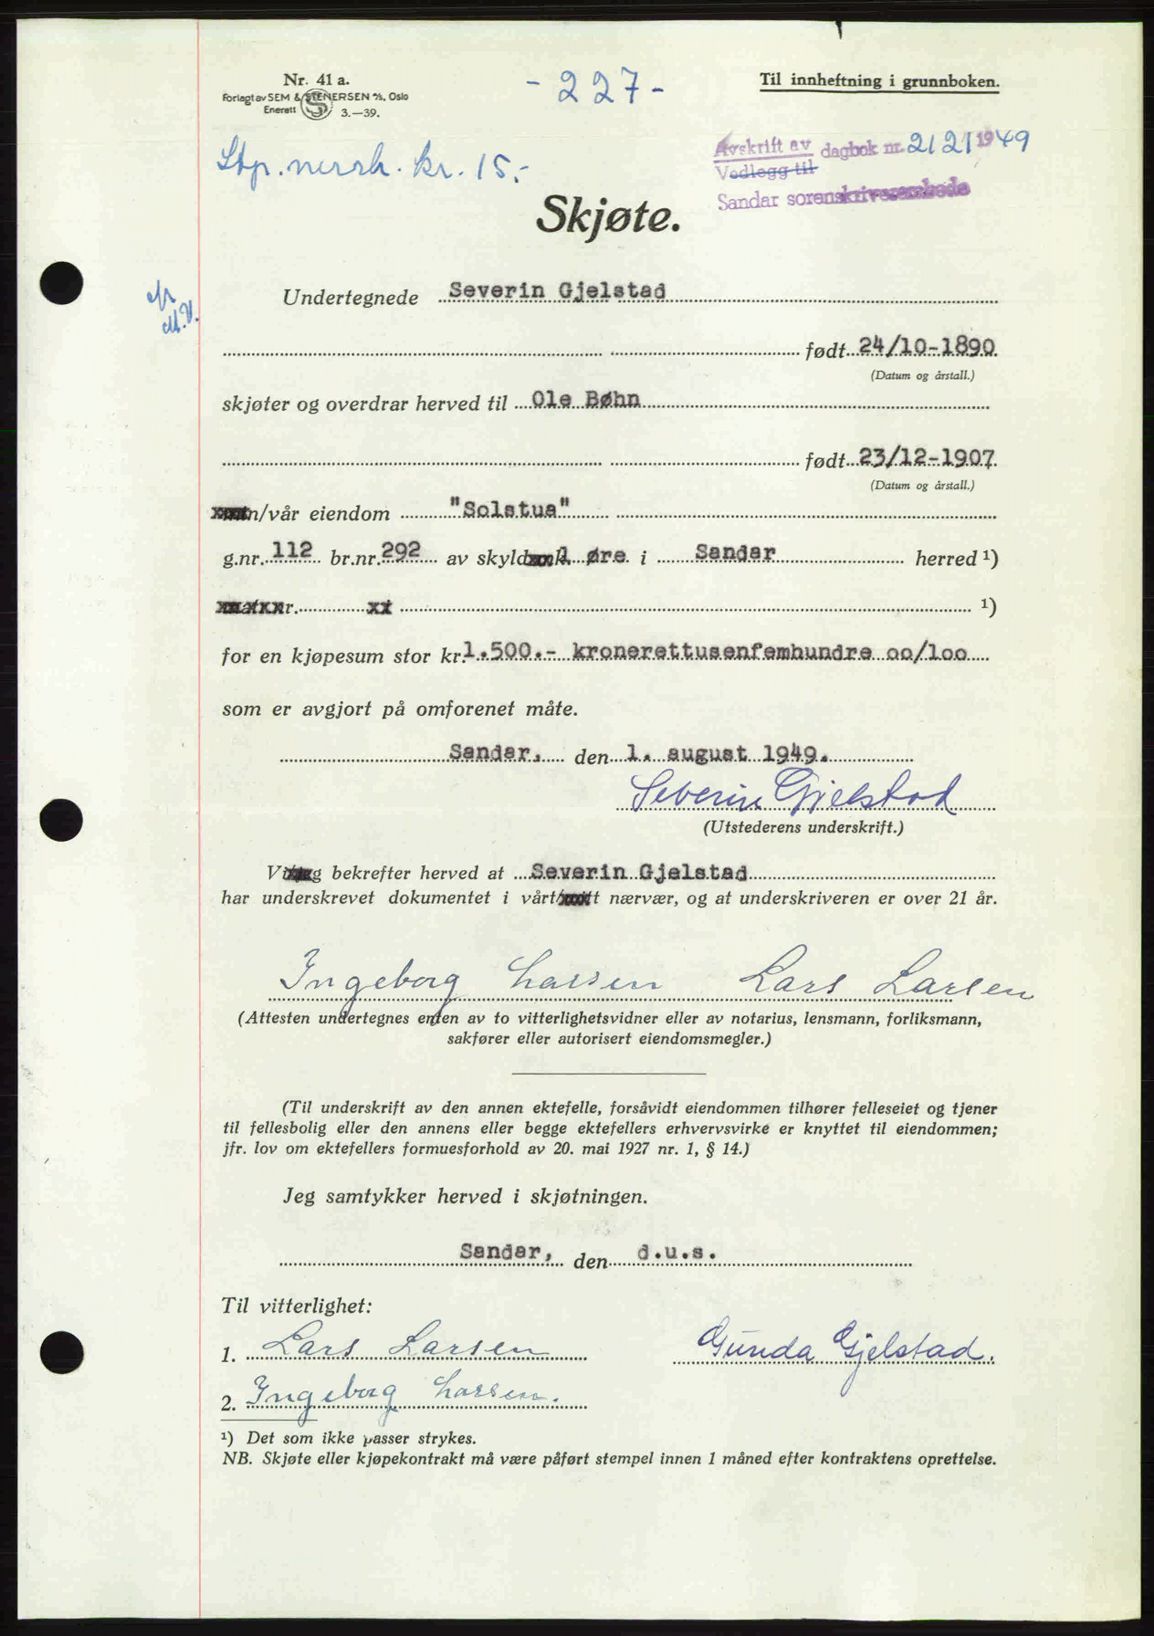 Nr. 41 a.
Forlagt av SEM & STENERSEN A/S, Oslo
Enerett 3.—39.
- 227 -
Til innheftning i grunnboken.
Stp. merk. kr. 15.-
Avskrift av dagbok nr. 2121 1949
Vedlegg til
Sandar sorenskriverembede
Skjøte.
Undertegnede Severin Gjelstad
født 24/10-1890
(Datum og årstall.)
skjøter og overdrar herved til Ole Bøhn
født 23/12-1907
(Datum og årstall.)
n/vår eiendom "Solstua"
g.nr. 112 br.nr. 292 av skyld 1 øre i Sandar herred ¹)
¹)
for en kjøpesum stor kr. 1.500.- kronerettusenfemhundre oo/loo
som er avgjort på omforenet måte.
Sandar, den 1. august 1949.
Severin Gjelstad
(Utstederens underskrift.)
Vi bekrefter herved at Severin Gjelstad
har underskrevet dokumentet i vårt nærvær, og at underskriveren er over 21 år.
Ingeborg Larsen Lars Larsen
(Attesten undertegnes enten av to vitterlighetsvidner eller av notarius, lensmann, forliksmann,
sakfører eller autorisert eiendomsmegler.)
(Til underskrift av den annen ektefelle, forsåvidt eiendommen tilhører felleseiet og tjener
til fellesbolig eller den annens eller begge ektefellers erhvervsvirke er knyttet til eiendommen;
jfr. lov om ektefellers formuesforhold av 20. mai 1927 nr. 1, § 14.)
Jeg samtykker herved i skjøtningen.
Sandar, den d.u.s.
Til vitterlighet:
1. Lars Larsen
Gunda Gjelstad.
2. Ingeborg Larsen.
¹) Det som ikke passer strykes.
NB. Skjøte eller kjøpekontrakt må være påført stempel innen 1 måned efter kontraktens oprettelse.